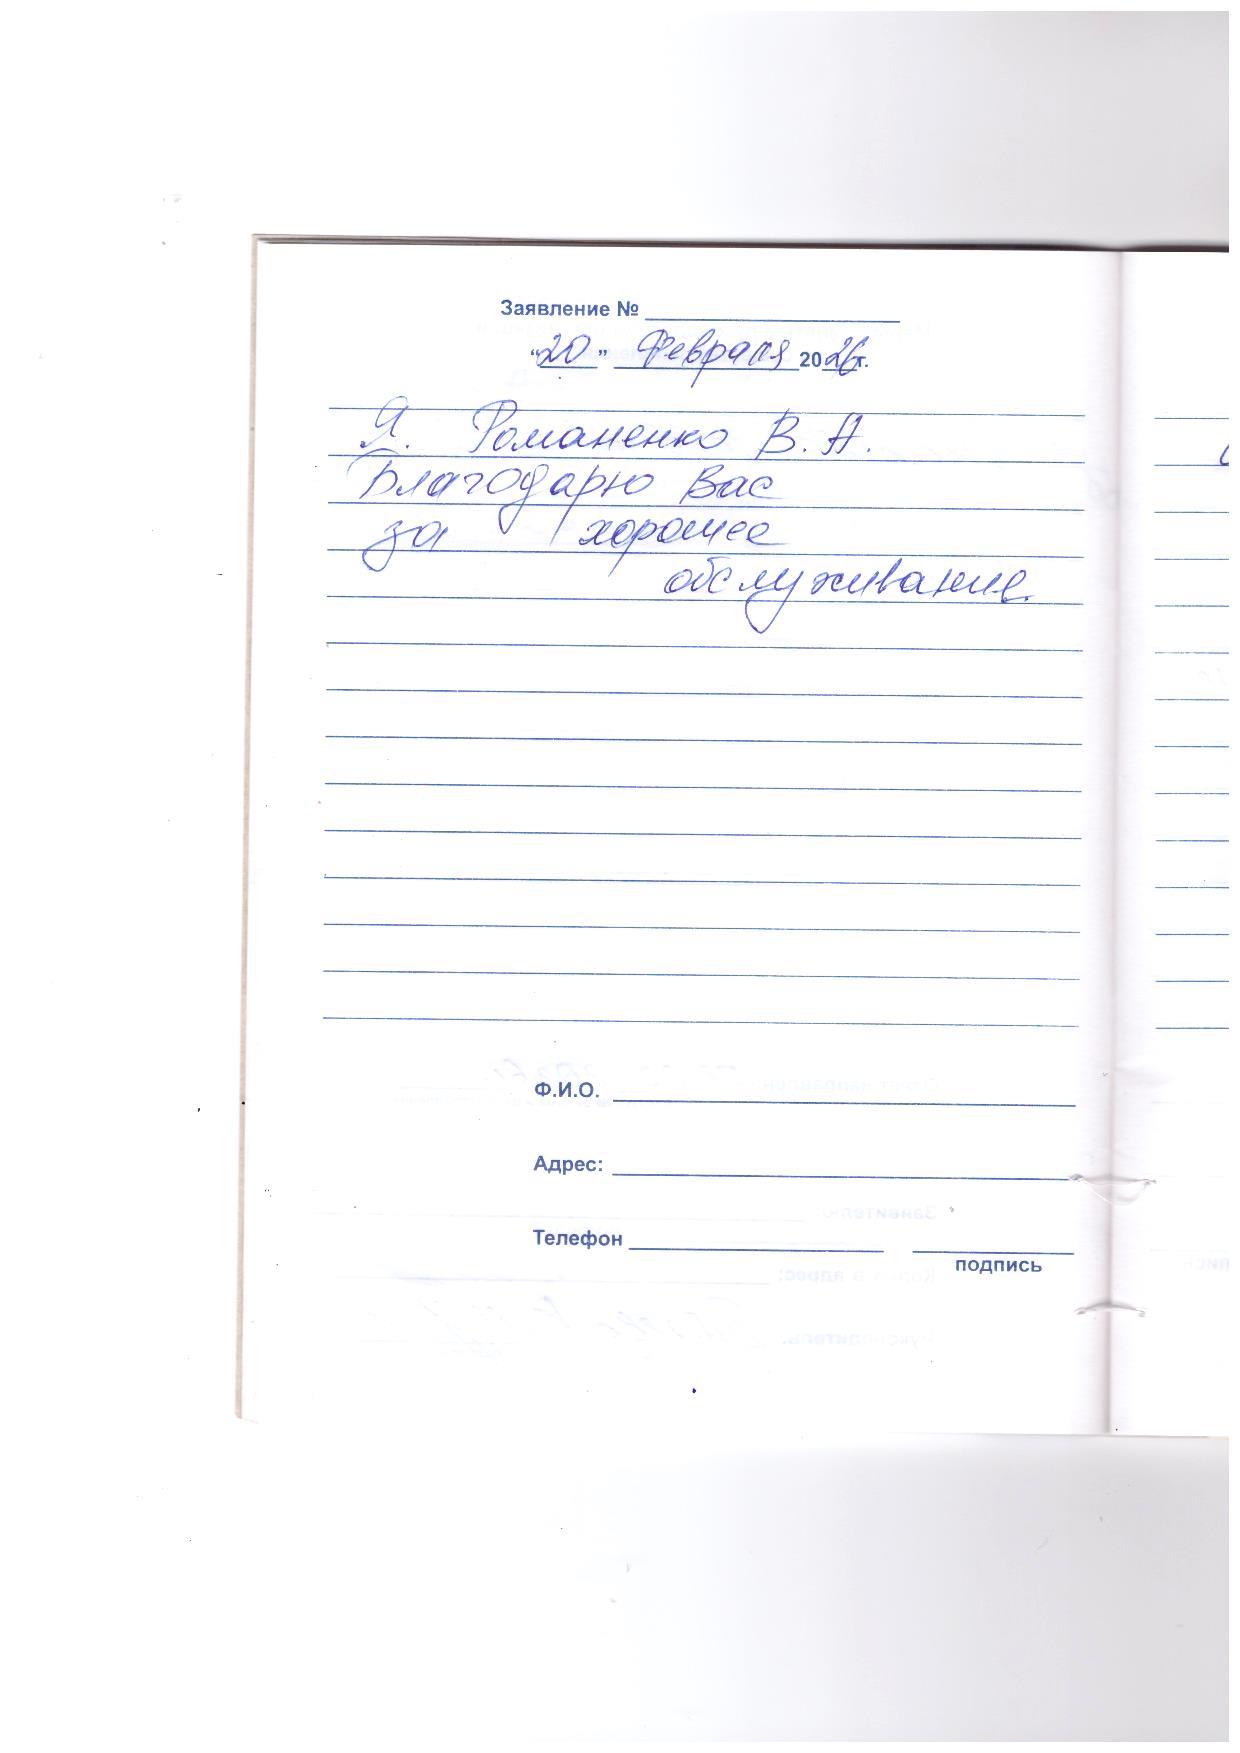 Заявление №
"20" Февраля 2026 г.
Я. Романенко В. А.
Благодарю Вас
за хорошее
обслуживание.
Ф.И.О.
Адрес:
Телефон
подпись